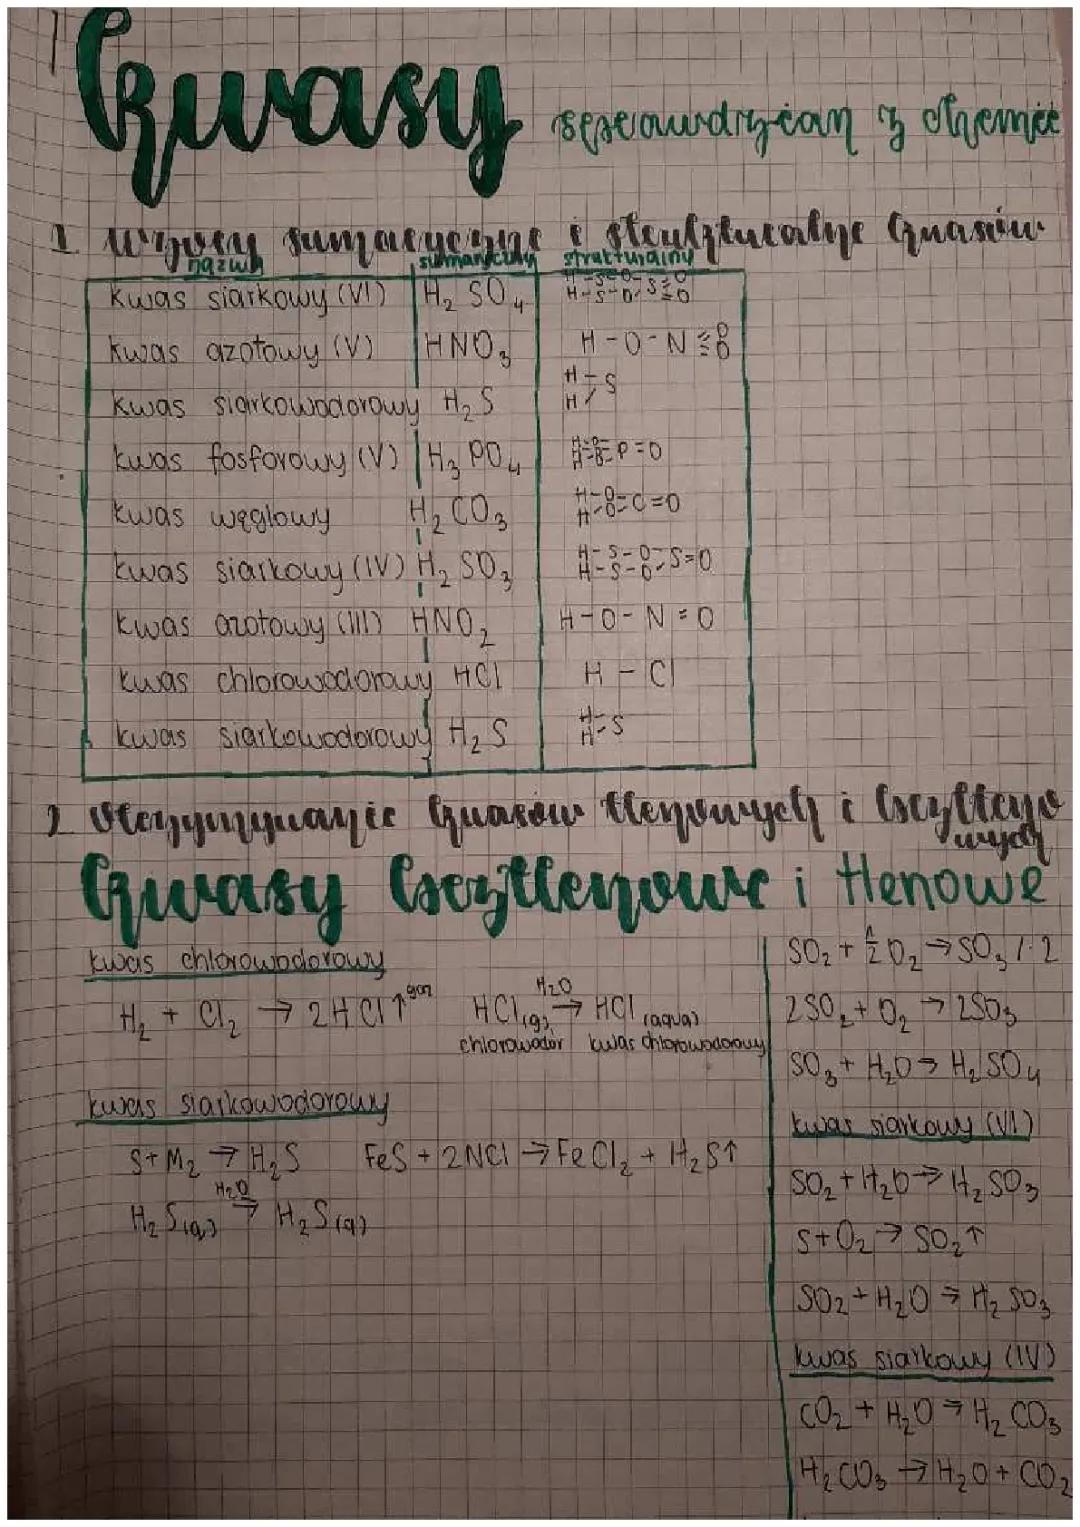 Kwasy sprawdzian z chemii
1 Wzory sumaryczne i strukturalne kwasów
nazwa sumaryczny strukturalny
kwas siarkowy (VI) H₂SO₄
kwas azotowy (V) HNO₃ H-O-N
kwas siarkowodorowy H₂S H-S H
kwas fosforowy (V) H₃PO₄ P=O
kwas węglowy H₂CO₃ H-O-C=O H-O
kwas siarkowy (IV) H₂SO₃ H-S-O-S=O H-S-O
kwas azotowy (III) HNO₂ H-O-N=O
kwas chlorowodorowy HCl H-Cl
kwas siarkowodorowy H₂S H-S H
2 Otrzymywanie kwasów tlenowych i beztleno
wych
Kwasy beztlenowe i tlenowe
kwas chlorowodorowy
H₂ + Cl₂ → 2HCl↑ gaz HCl(g) H₂O → HCl (aqua)
chlorowodór kwas chlorowodorowy
kwas siarkowodorowy
S+M₂ → H₂S FeS + 2NCl → FeCl₂ + H₂S↑
H₂S(g) H₂O → H₂S(q)
SO₂ + ½O₂ → SO₃ /·2
2SO₂ + O₂ → 2SO₃
SO₃ + H₂O → H₂SO₄
kwas siarkowy (VI)
SO₂ + H₂O → H₂SO₃
S+O₂ → SO₂↑
SO₂ + H₂O → H₂SO₃
kwas siarkowy (IV)
CO₂ + H₂O → H₂CO₃
H₂CO₃ → H₂O + CO₂